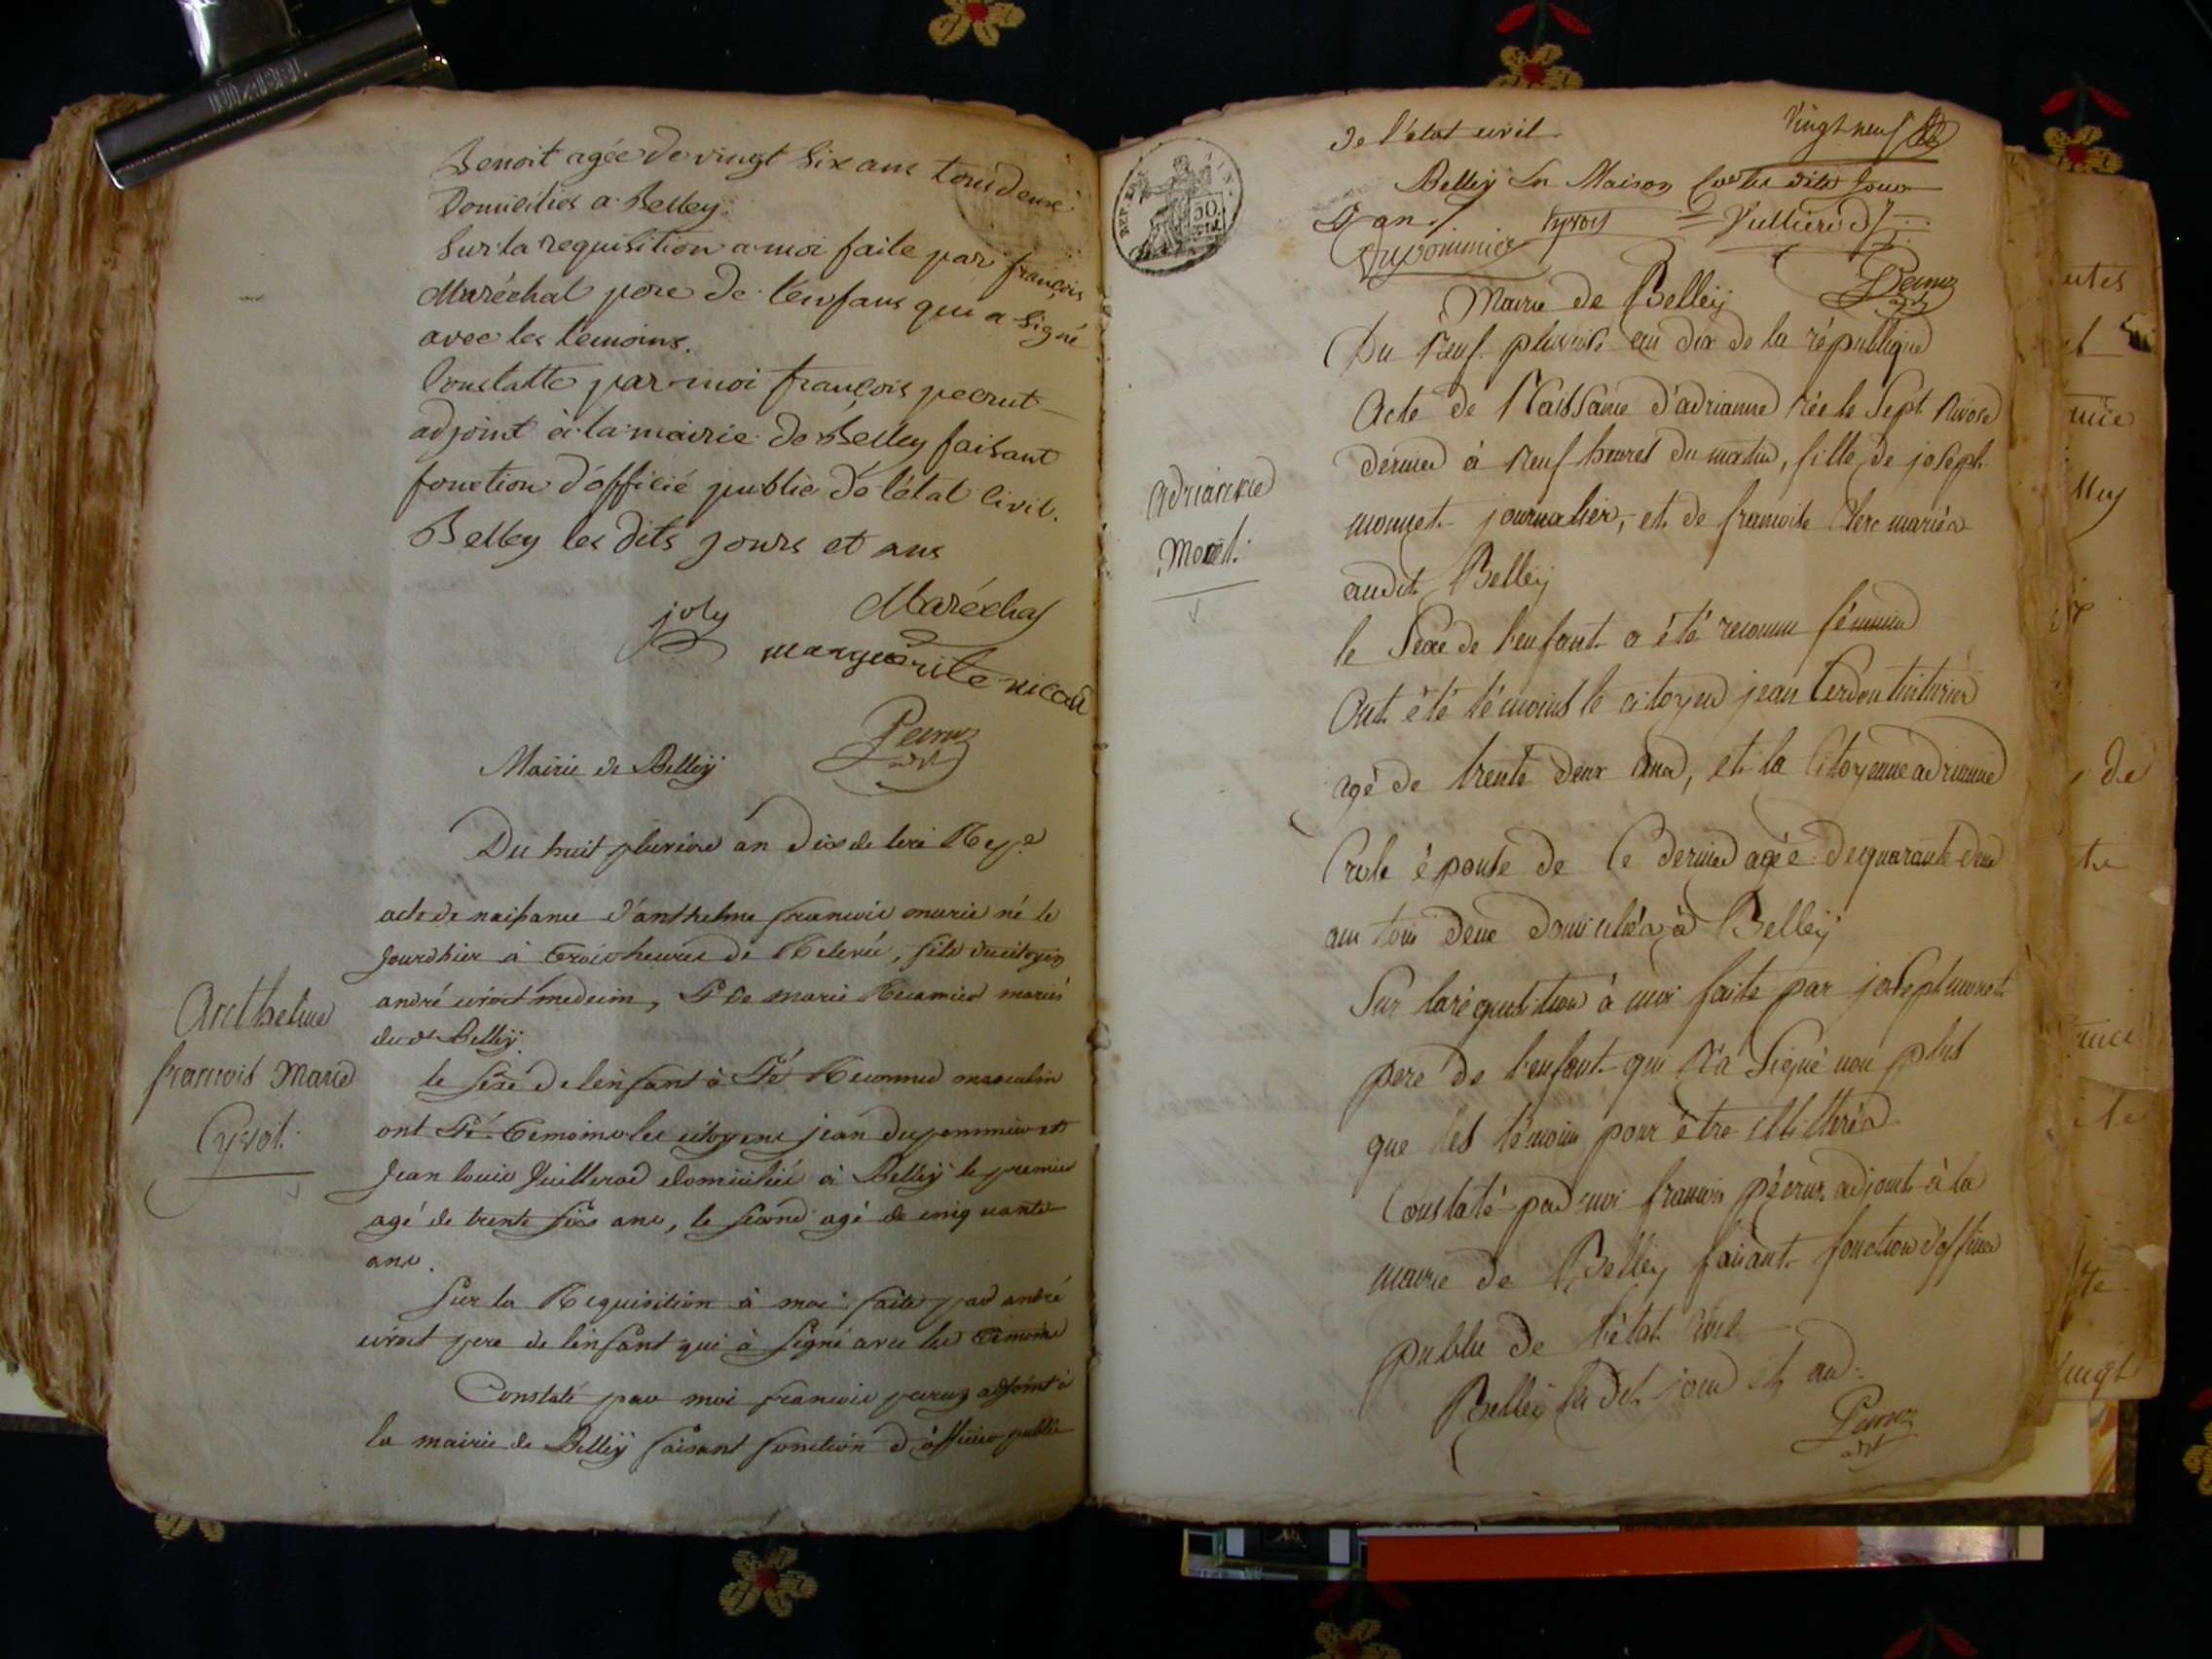 Benoit agée de vingt six ans tous deux
Domiciliés a Belley.
Sur la requisition a moi faite par françois
Maréchal pere de l'enfant qui a signé
avec les temoins.
Constatté par moi françois pecrut
adjoint à la mairie de Belley faisant
fonction d'officié public de l'état Civil.
Belley les dits jours et ans
joly Maréchal
marguerite
Mairie de Belleÿ
Du huit pluviose an dix de la Rep.e
acte de naissance d'anthelme francois marie né le
jourdhier à trois heures de Relevé, fils du citoyen
andré civoct medecin, Et de marie Recamier mariés
du dt Belleÿ.
Anthelme
francois Marie
Cyvot.
le sexe de l'enfant à Eté Reconnu masculin
ont Eté temoins les citoyens jean dupommier et
Jean louis Vuillerod domiciliés à Belleÿ le premier
agé de trente six ans, le second agé de cinquante
ans.
Sur la Requisition à moi faite par andré
civoct pere de l'enfant qui à signé avec les temoins
Constaté par moi francois pecruz adjoint à
la mairie de Belleÿ faisant fonction d'officier public
de l'état civil
Vingt neuf
Belleÿ En Maison les dits Jour
Et an
Dupommier
Mairie de Belleÿ
Du Neuf pluviose an dix de la république
Acte de Naissance d'adrianne née le Sept Nivose
dernier à neuf heures du matin, fille de joseph
monnet journalier, et de francoise Clerc mariés
audit Belleÿ
adrianne
Monet.
le Sexe de l'enfant a été reconnu féminin
Ont été témoins le citoyen jean Cerdon tinturier
agé de trente deux ans, et la Citoyenne adrianne
épouse de Ce dernier agée de quarante deux
ans tous deux domiciliés à Belleÿ
Sur la réquisition à moi faite par joseph monet
pere de l'enfant qui n'a Signé non plus
que les témoins pour être illitterés
Constaté par moi francois pécruz adjoint à la
mairie de Belley faisant fonction d'officier
public de l'état Civil
Belleÿ les dits jour et an.